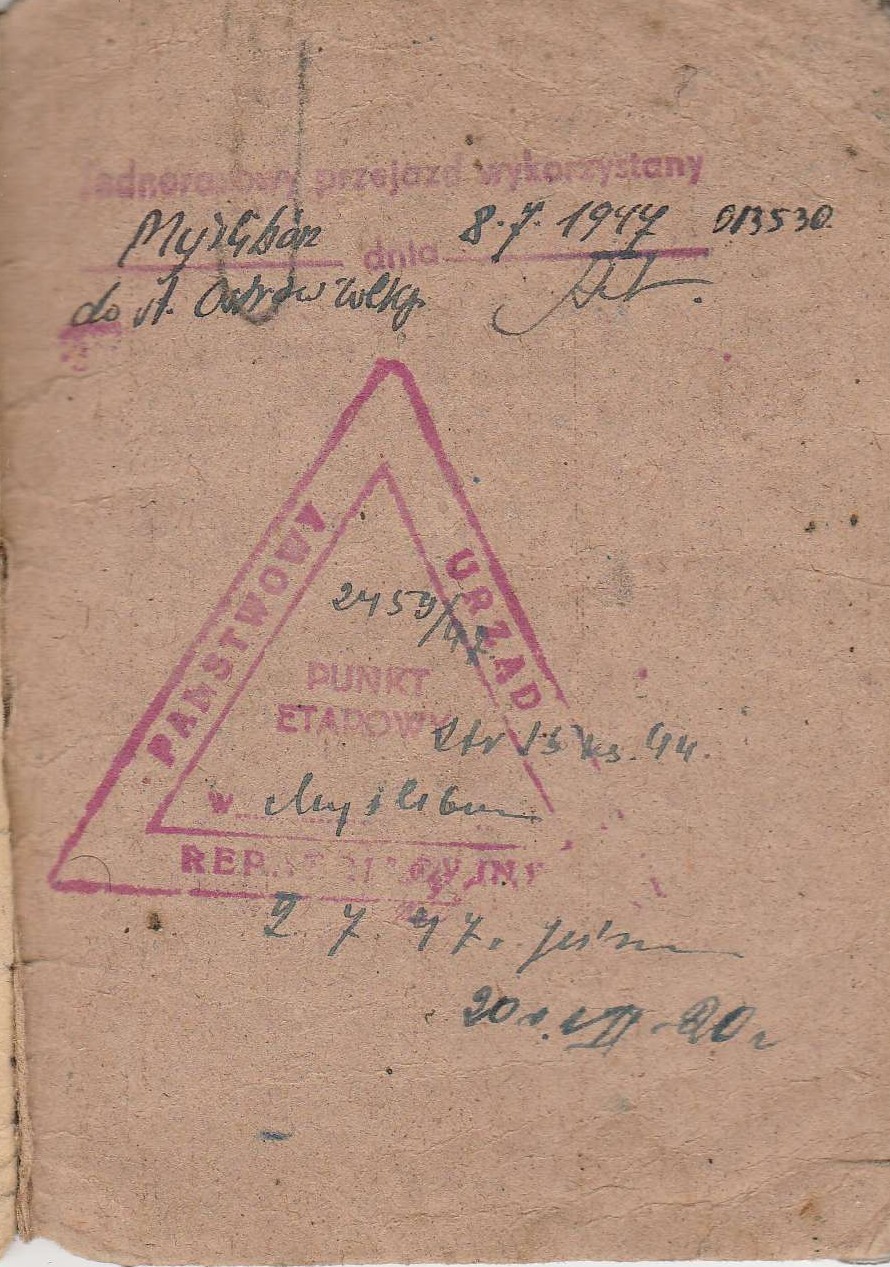 Jednorazowy przejazd wykorzystany
Myślibórz dnia 8.7.1947 013530
do st. Ostrów Wlkp.
PAŃSTWOWY URZĄD
2459/47
PUNKT
ETAPOWY
str 15 ks. 44.
w Myślibórz
REPATRIACYJNY
2.7.47.